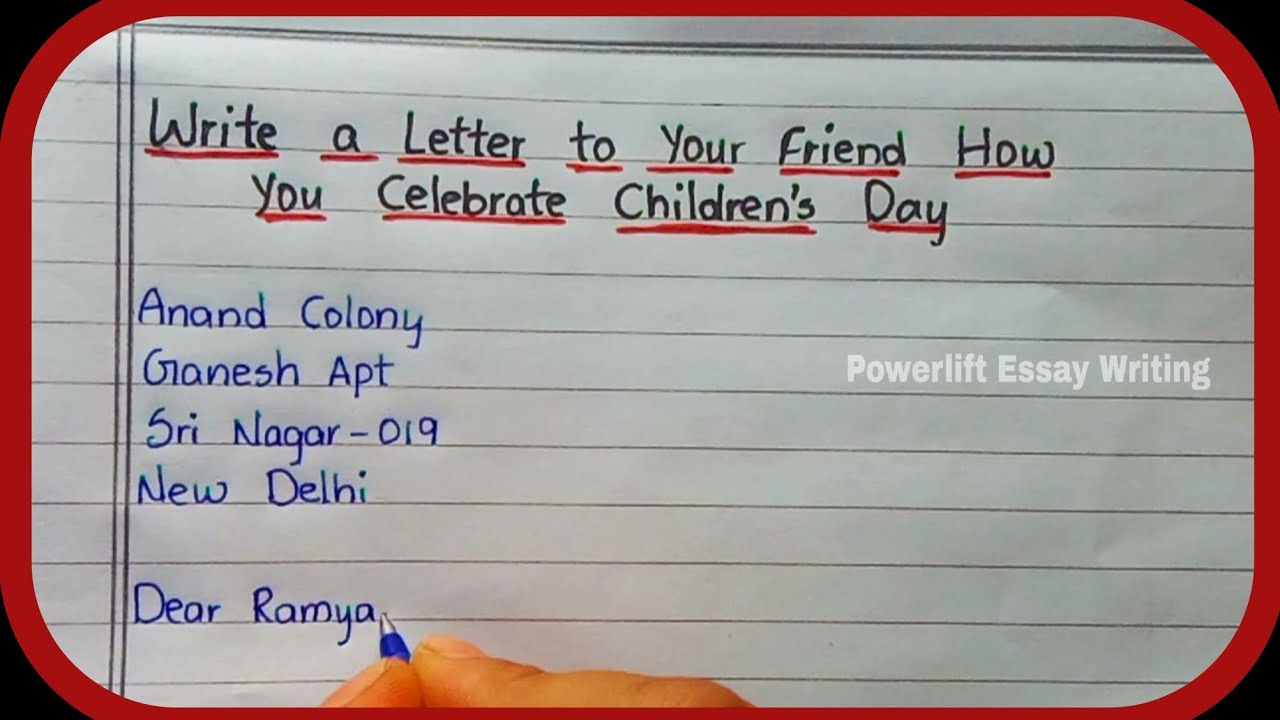 Write a Letter to Your Friend How
You Celebrate Children's Day
Anand Colony
Ganesh Apt
Sri Nagar-019
New Delhi
Powerlift Essay Writing
Dear Ramya,